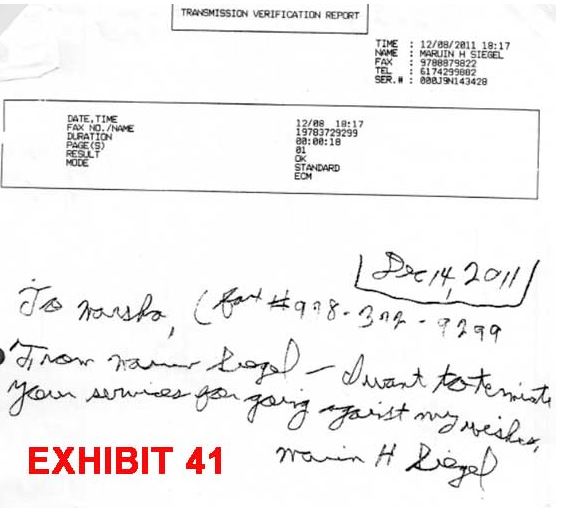 TRANSMISSION VERIFICATION REPORT
TIME : 12/08/2011 18:17
NAME : MARUIN H SIEGEL
FAX : 9788879822
TEL : 6174299882
SER.# : 000J9N143428
DATE,TIME 12/08 18:17
FAX NO./NAME 19783729299
DURATION 00:00:18
PAGE(S) 01
RESULT OK
MODE STANDARD
ECM
Dec 14, 2011
To Marsha, (fax # 978-372-9299
From Marvin Siegel – I want to temiate
your services for going against my wishes,
Marvin H Siegel
EXHIBIT 41